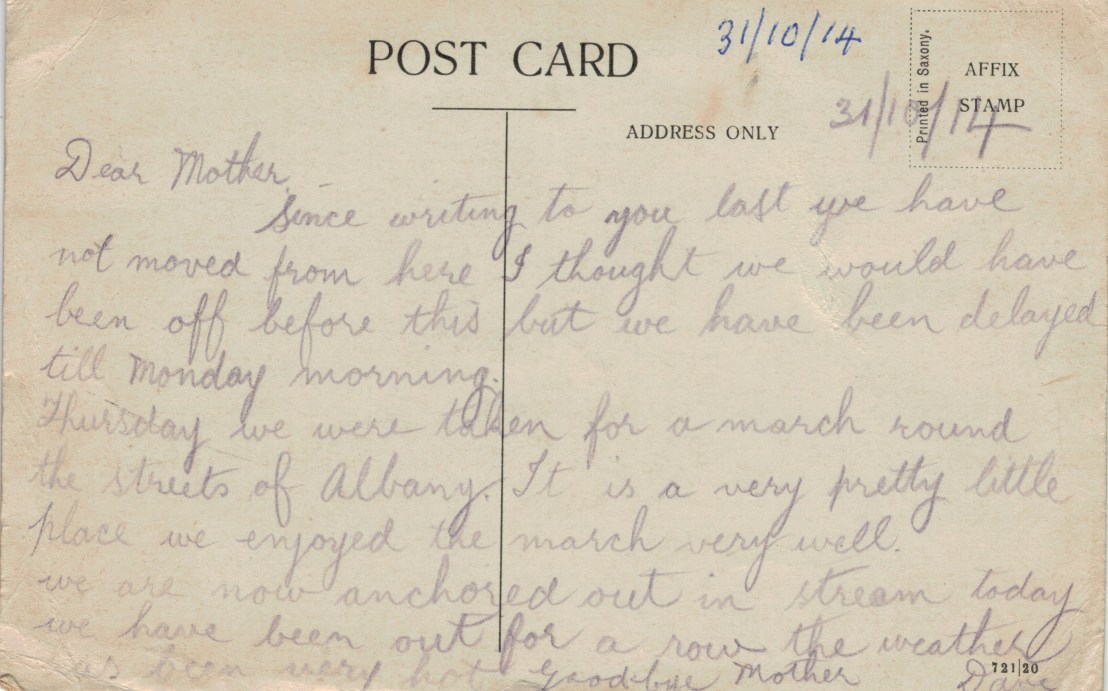 POST CARD
31/10/14
Printed in Saxony.
AFFIX
STAMP
31/10/14
ADDRESS ONLY
Dear Mother. –
Since writing to you last we have
not moved from here I thought we would have
been off before this but we have been delayed
till Monday morning.
Thursday we were taken for a march round
the streets of Albany. It is a very pretty little
place we enjoyed the march very well.
we are now anchored out in stream today
we have been out for a row the weather
as been very hot Goodbye Mother Dave
721|20